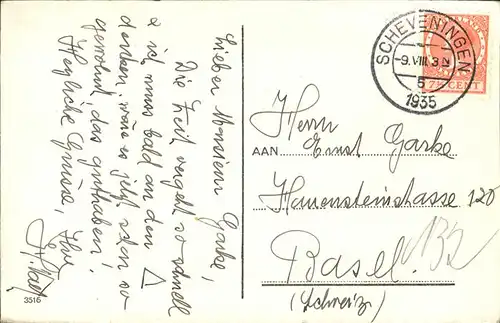 Lieber Monsieur Garke,
Die Zeit vergeht so schnell
& ich muss bald an den △
denken, wäre es jetzt schon so-
gewohnt, das guthaben!
Herzliche Grüsse, Ihr
3516
SCHEVENINGEN
-9.VIII.3
5
1935
7½ CENT
AAN
Herrn
Ernst Garke
Hauensteinstasse 120
132
Basel.
(Schweiz)